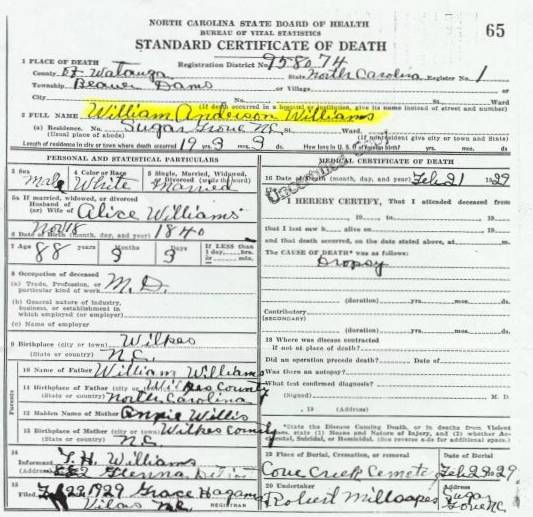 NORTH CAROLINA STATE BOARD OF HEALTH
BUREAU OF VITAL STATISTICS
STANDARD CERTIFICATE OF DEATH
65
1 PLACE OF DEATH Registration District No. 958074
County of Watauga State North Carolina Register No. 1
Township Beaver Dams or Village or
City No. St. Ward
(If death occurred in a hospital or institution, give its name instead of street and number)
2 FULL NAME William Anderson Williams
(a) Residence. No. Sugar Grove NC St. Ward.
(Usual place of abode) (If nonresident give city or town and State)
Length of residence in city or town where death occurred yrs. mos. ds. How long in U. S. if of foreign birth? yrs. mos. ds.
PERSONAL AND STATISTICAL PARTICULARS
3 Sex Male 4 Color or Race White 5 Single, Married, Widowed, or Divorced (write the word) Married
5a If married, widowed, or divorced
Husband of
(or) Wife of Alice Williams
6 Date of Birth (month, day, and year) Nov 18 1840
7 Age 88 years 3 Months 3 Days If LESS than 1 day, hrs. or min.
8 Occupation of deceased
(a) Trade, Profession, or particular kind of work M.D.
(b) General nature of industry, business, or establishment in which employed (or employer)
(c) Name of employer
9 Birthplace (city or town) Wilkes
(State or country) N.C.
Parents
10 Name of Father William Williams
11 Birthplace of Father (city or town) Wilkes County
(State or country) North Carolina
12 Maiden Name of Mother Annie Willis
13 Birthplace of Mother (city or town) Wilkes County
(State or country) N.C.
14
Informant T. H. Williams
(Address)
15
Filed Feb 22 1929 Grace Hagaman
Vilas N.C. REGISTRAR
MEDICAL CERTIFICATE OF DEATH
16 Date of Death (month, day, and year) Feb 21 1929
17
I HEREBY CERTIFY, That I attended deceased
from , 19 , to , 19
that I last saw h alive on , 19
and that death occurred, on the date stated above, at m.
The CAUSE OF DEATH* was as follows:
Dropsy
(duration) yrs. mos. ds.
Contributory
(SECONDARY)
(duration) yrs. mos. ds.
18 Where was disease contracted
if not at place of death?
Did an operation precede death? Date of
Was there an autopsy?
What test confirmed diagnosis?
(Signed) M. D.
, 19 (Address)
*State the Disease Causing Death, or in deaths from Violent Causes, state (1) Means and Nature of Injury, and (2) whether Accidental, Suicidal, or Homicidal. (See reverse side for additional space.)
19 Place of Burial, Cremation, or Removal Date of Burial
Cove Creek Cemetery Feb 22 1929
20 Undertaker Address
Robert Millsapes Sugar Grove NC